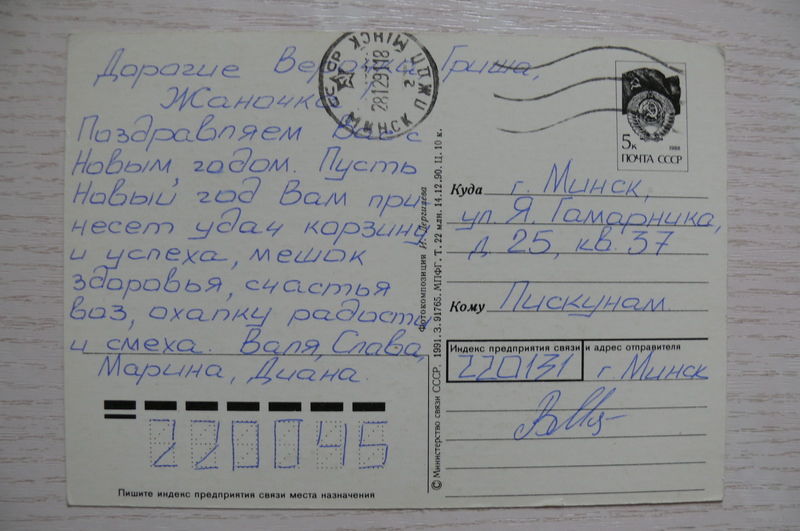 Дорогие Верочка, Гриша,
Жаночка
Поздравляем Вас с
Новым, годом. Пусть
Новый год Вам при
несет удач корзину
и успеха, мешок
здоровья, счастья
воз, охапку радости
и смеха. Валя, Слава,
Марина, Диана.
220045
Пишите индекс предприятия связи места назначения
МІНСК ПДЖЦ
СССР
2812911 18
2
МИНСК
5к
1988
ПОЧТА СССР
Куда г. Минск,
ул. Я. Гамарника,
д. 25, кв. 37
Кому Пискунам.
Индекс предприятия связи и адрес отправителя
220131 г. Минск
© Министерство связи СССР, 1991. З. 91765. МПФГ. Т. 22 млн. 14.12.90. Ц. 10 к.
Фотокомпозиция И.